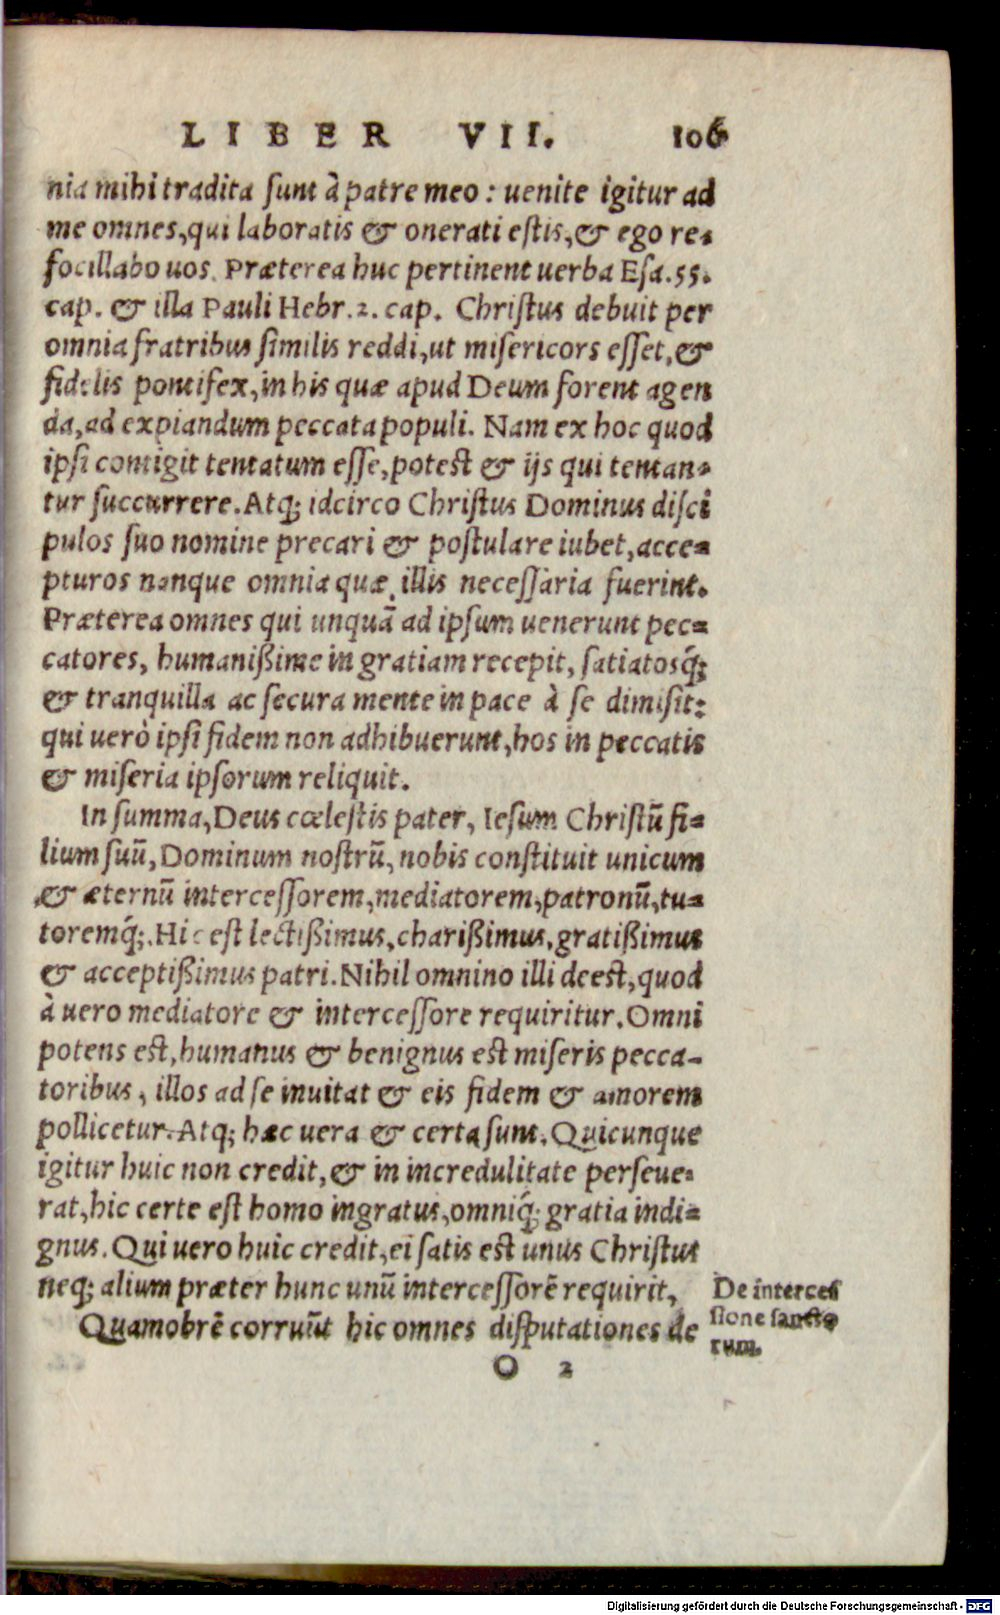 LIBER VII. 106
nia mihi tradita ſunt à patre meo : uenite igitur ad
me omnes, qui laboratis & onerati eſtis, & ego re-
focillabo uos. Præterea huc pertinent uerba Eſa. 55.
cap. & illa Pauli Hebr. 2. cap. Chriſtus debuit per
omnia fratribus ſimilis reddi, ut miſericors eſſet, &
fidelis pontifex, in his quæ apud Deum forent agen
da, ad expiandum peccata populi. Nam ex hoc quod
ipſi contigit tentatum eſſe, poteſt & ijs qui tentan-
tur ſuccurrere. Atq; idcirco Chriſtus Dominus diſci
pulos ſuo nomine precari & poſtulare iubet, acce-
pturos nanque omnia quæ illis neceſſaria fuerint.
Præterea omnes qui unquã ad ipſum uenerunt pec-
catores, humanißime in gratiam recepit, ſatiatosq́;
& tranquilla ac ſecura mente in pace à ſe dimiſit:
qui uerò ipſi fidem non adhibuerunt, hos in peccatis
& miſeria ipſorum reliquit.
In ſumma, Deus cœleſtis pater, Ieſum Chriſtũ fi-
lium ſuũ, Dominum noſtrũ, nobis conſtituit unicum
& æternũ interceſſorem, mediatorem, patronũ, tu-
toremq́;. Hic eſt lectißimus, charißimus, gratißimus
& acceptißimus patri. Nihil omnino illi deeſt, quod
à uero mediatore & interceſſore requiritur. Omni
potens eſt, humanus & benignus eſt miſeris pecca-
toribus, illos ad ſe inuitat & eis fidem & amorem
pollicetur. Atq; hæc uera & certa ſunt. Quicunque
igitur huic non credit, & in incredulitate perſeue-
rat, hic certe eſt homo ingratus, omniq́; gratia indi-
gnus. Qui uero huic credit, ei ſatis eſt unus Chriſtus
neq; alium præter hunc unũ interceſſorẽ requirit,
Quamobrẽ corruũt hic omnes diſputationes de
De interceſ
ſione ſancto
rum.
O 2
Digitalisierung gefördert durch die Deutsche Forschungsgemeinschaft - DFG